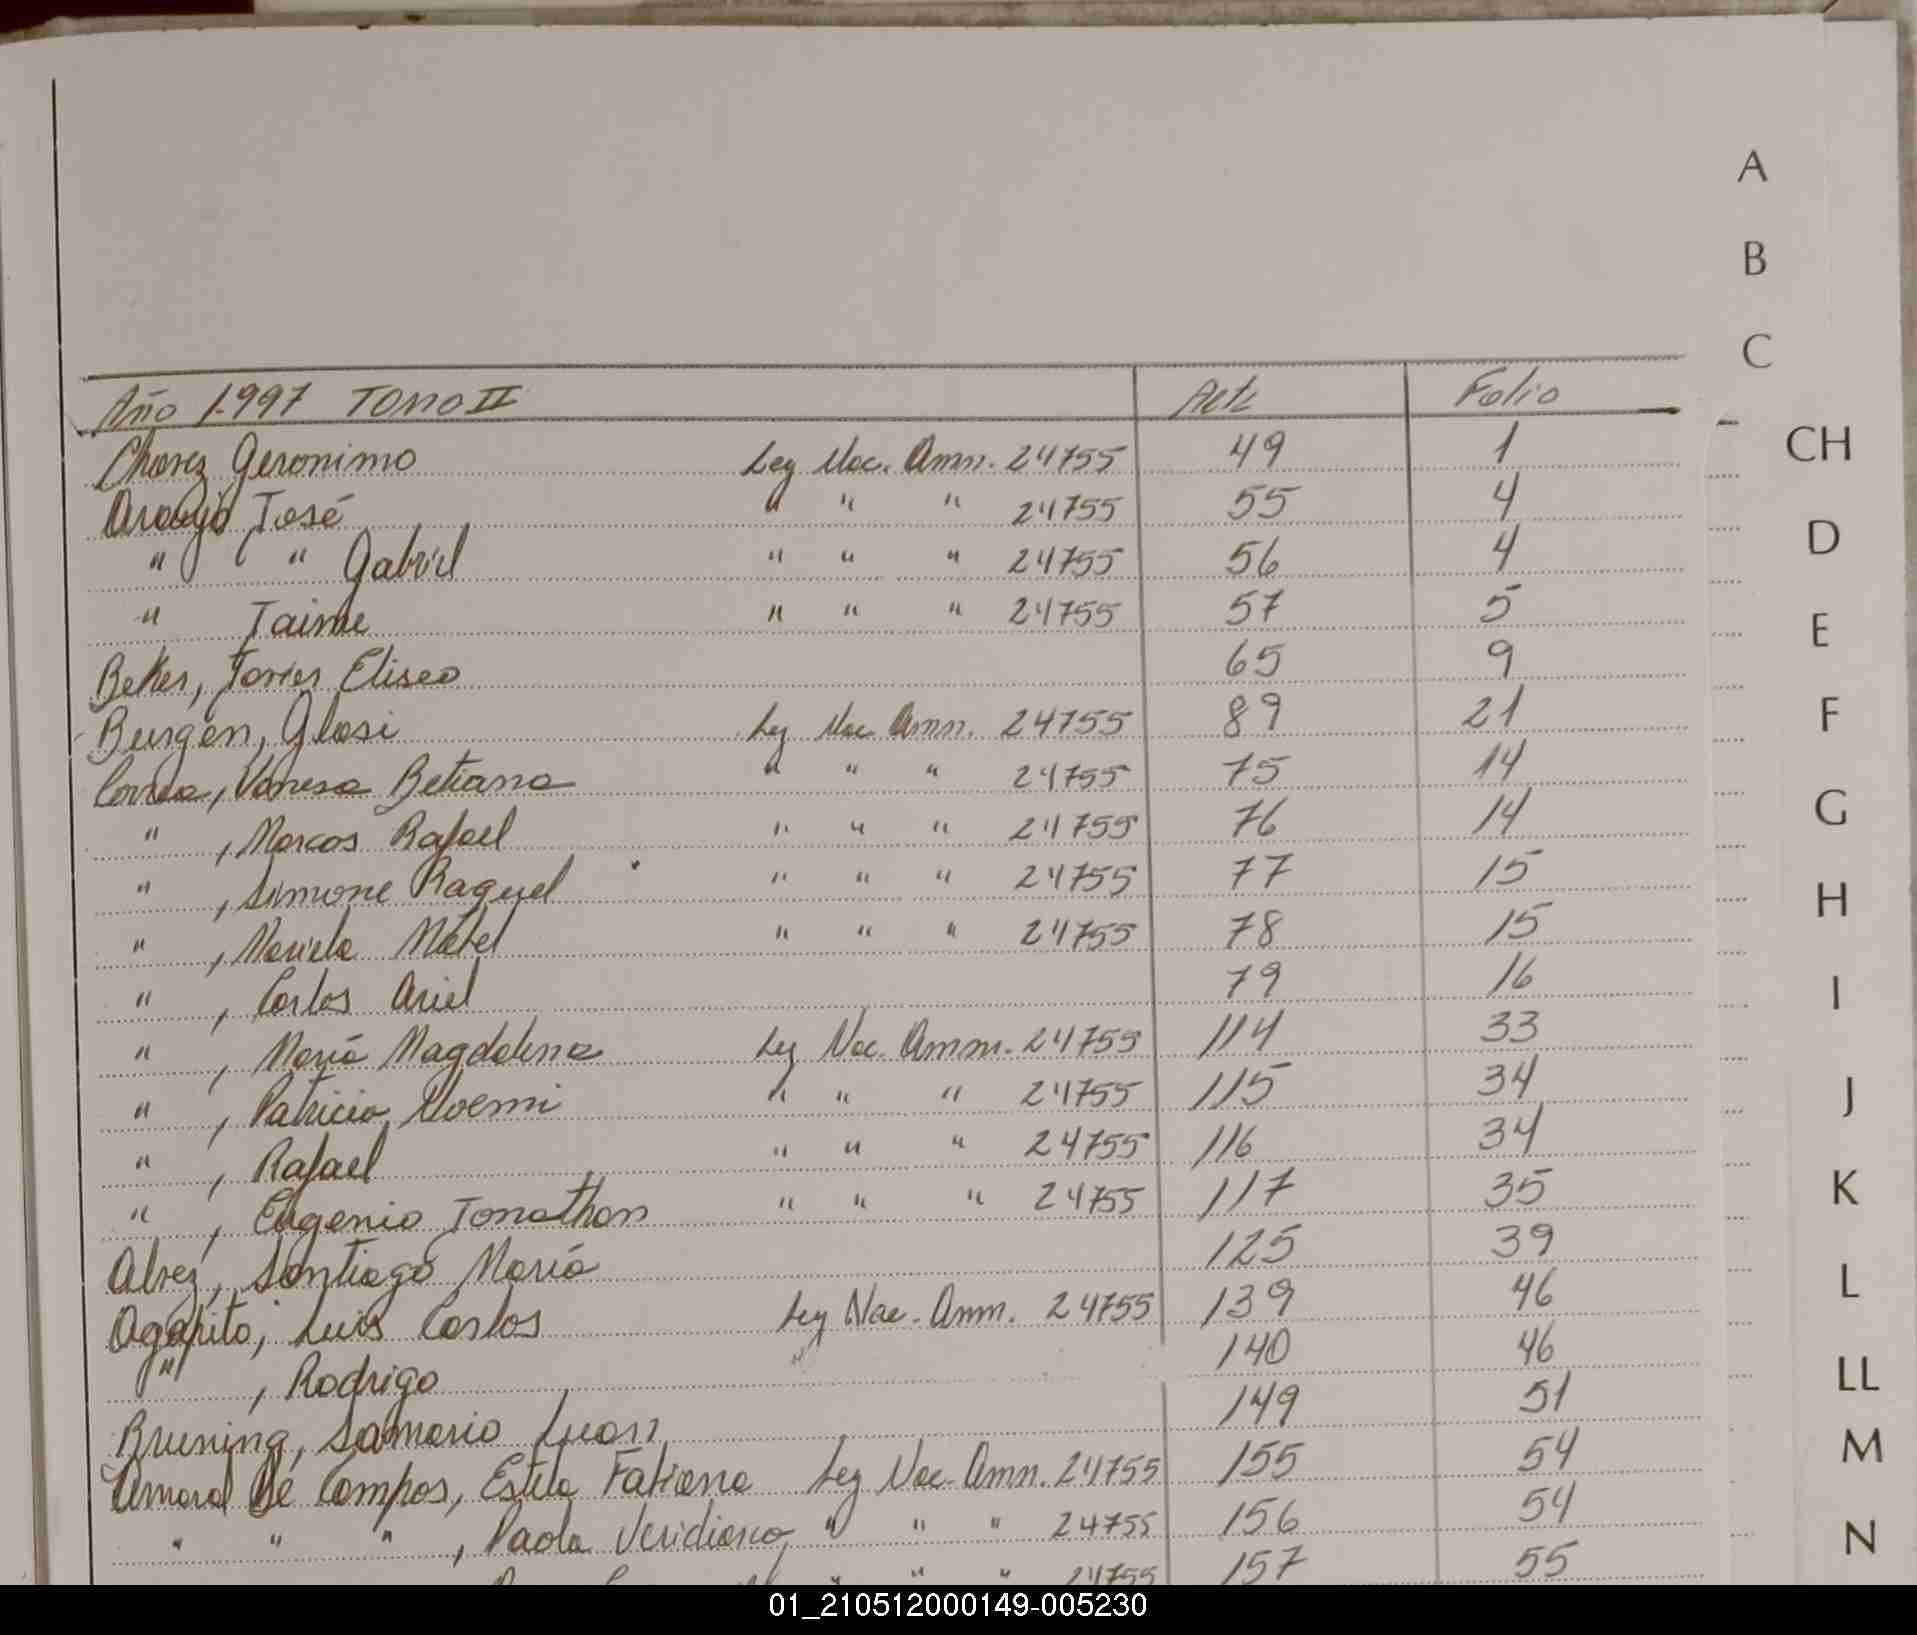 A
B
C
Año 1.997 TOMO II Acta Folio
Chavez Geronimo Ley Nac. Amn. 24755 49 1
CH
Araujo José " " " 24755 55 4
D
" " Gabriel " " " 24755 56 4
" Jaime " " " 24755 57 5
E
Beker, Javier Eliseo 65 9
Burgen, Glasi Ley Nac Amn. 24755 89 21
F
Correa, Vanesa Betiana " " " 24755 75 14
" , Marcos Rafael " " " 24755 76 14
G
" , Simone Raquel " " " 24755 77 15
H
" , Mariela Mabel " " " 24755 78 15
" , Carlos Ariel 79 16
I
" , María Magdalena Ley Nac. Amn. 24755 114 33
" , Patricia Noemi " " " 24755 115 34
J
" , Rafael " " " 24755 116 34
" , Eugenio Jonathan " " " 24755 117 35
K
Alvez, Santiago María 125 39
L
Agapito, Luis Carlos Ley Nac. Amn. 24755 139 46
" , Rodrigo " 140 46
LL
Bruning, Samario Luan 149 51
M
Amaral De Campos, Estela Fabiana Ley Nac. Amn. 24755 155 54
" " " , Paola Veridiana, " " " 24755 156 54
N
" " " 24755 157 55
01_210512000149-005230